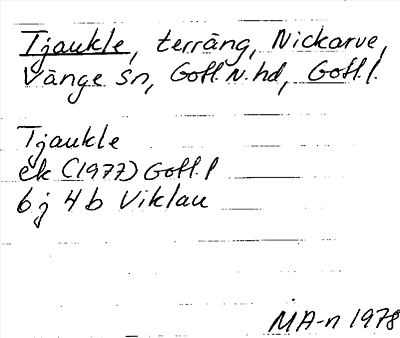 Tjaukle, terräng, Nickarve,
Vänge sn, Gotl. N. hd, Gotl. l.
Tjaukle
ek (1977) Gotl. l
6j 4b Viklau
MA-n 1978